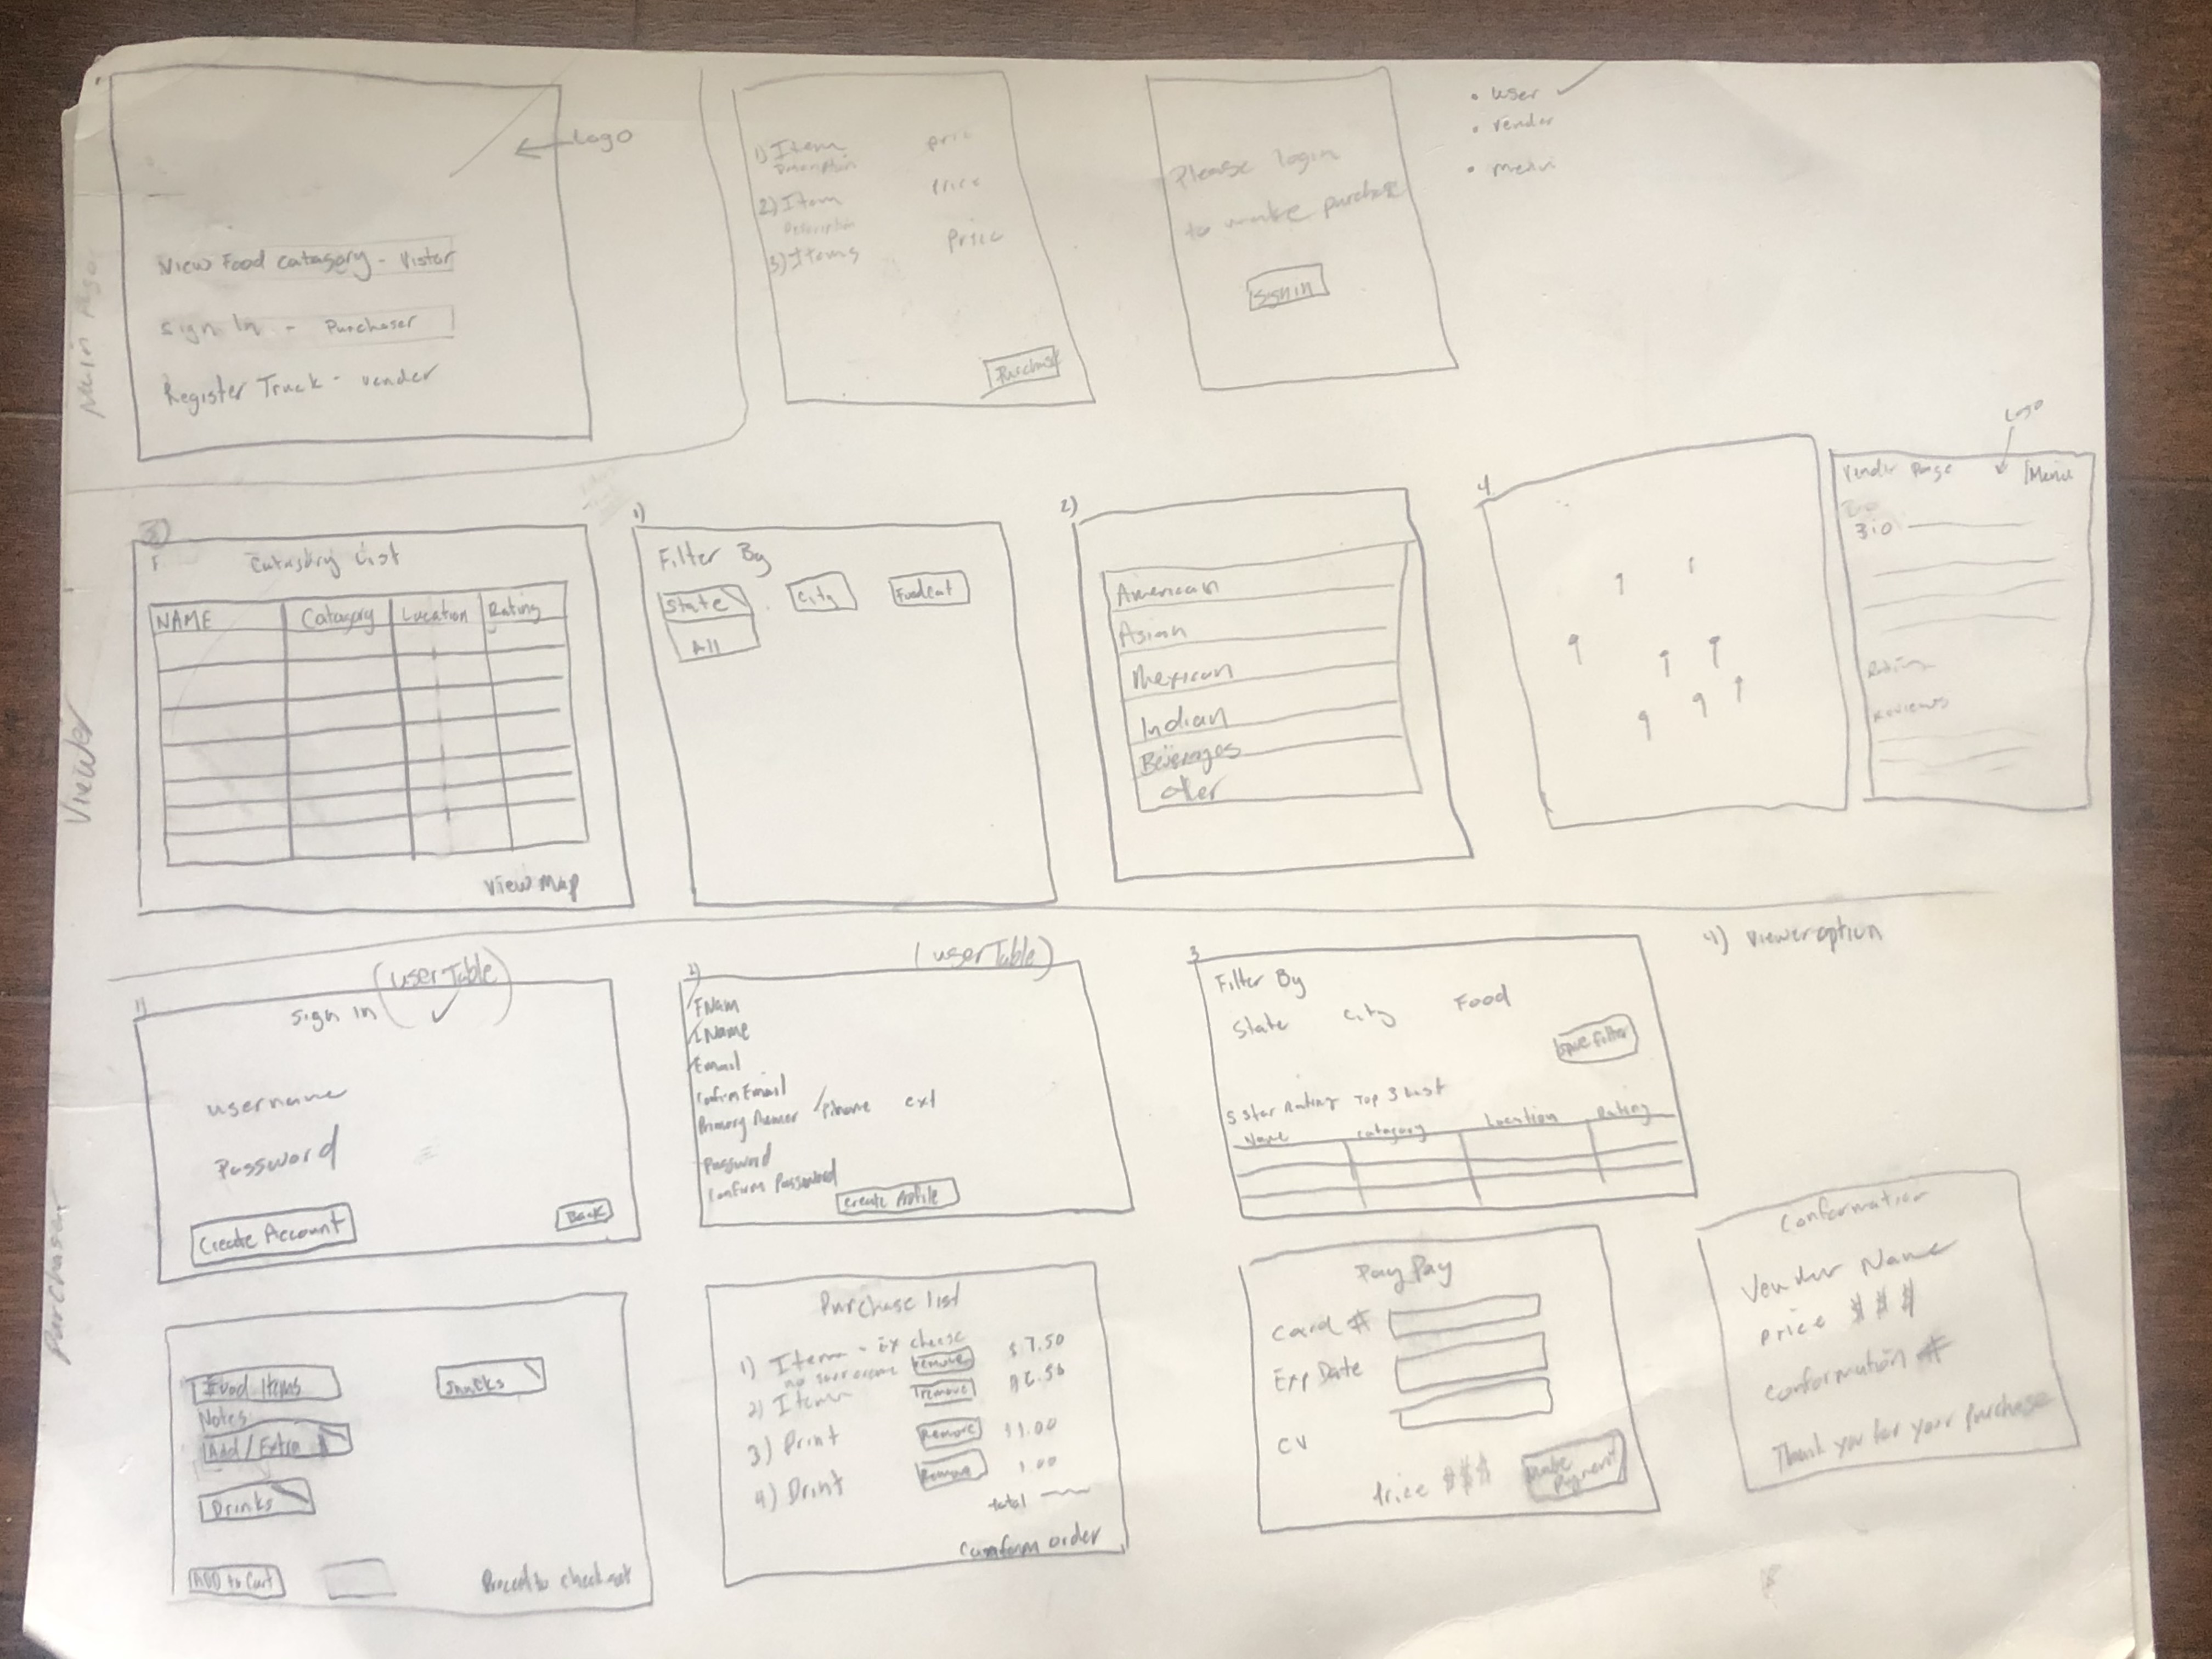 Main Page
Logo
View Food Catagory - Vistor
Sign In - Purchaser
Register Truck - vender
1) Item
Description
2) Item
price
Description
3) Items
price
Purchase
Please login
to make purchase
Sign in
• user
• vender
• menu
Viewer
3)
Catagory List
NAME
Catagory
Location
Rating
View Map
1)
Filter By
State
City
Foodcat
All
2)
American
Asian
Mexican
Indian
Beverages
other
4
Logo
Vender Page
Menu
Bio
Rating
Reviews
Purchaser
1)
Sign In
(userTable)
username
Password
Create Account
Back
2)
(userTable)
FNam
LName
Email
Confirm Email
Phone ext
Password
Confirm Password
Create Profile
3
Filter By
State City Food
Save Filter
5 Star Rating Top 3 List
Name
Catagory
Location
Rating
4) Viewer option
Food Items
Snacks
Notes
Add/Extra
Drinks
ADD to Cart
Proceed to checkout
Purchase list
1) Item - Ex cheese
Remove
$7.50
2) Item
Remove
3) Print
Remove
$1.00
4) Print
Remove
1.00
total
Conform order
PayPay
Card #
Exp Date
CV
Price $$$
Make Payment
Conformation
Vender Name
price $$$
Conformation #
Thank you for your purchase